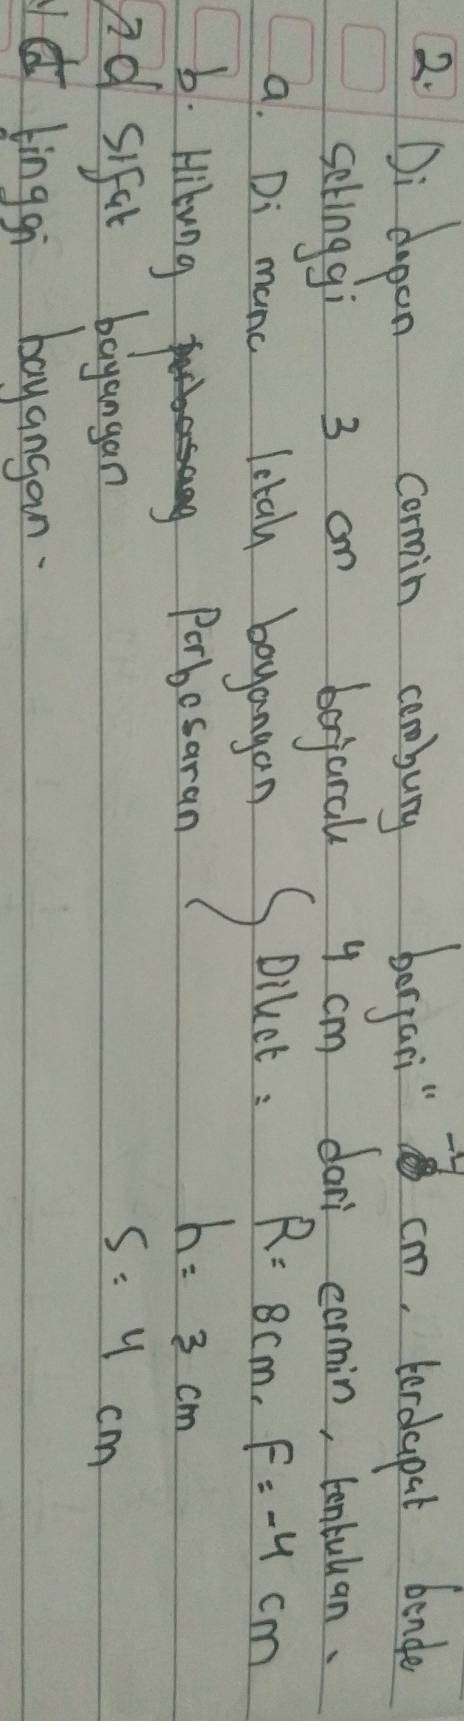 2. Di depan cermin cembung berjari" 8 cm, terdapat benda
setinggi 3 cm berjarak 4 cm dari cermin, tentukan.
a. Di mana letak bayangan
b. Hitung Perbesaran
d sifat bayangan
tinggi bayangan.
Diket: R = 8 cm, F = -4 cm
h = 3 cm
S = 4 cm